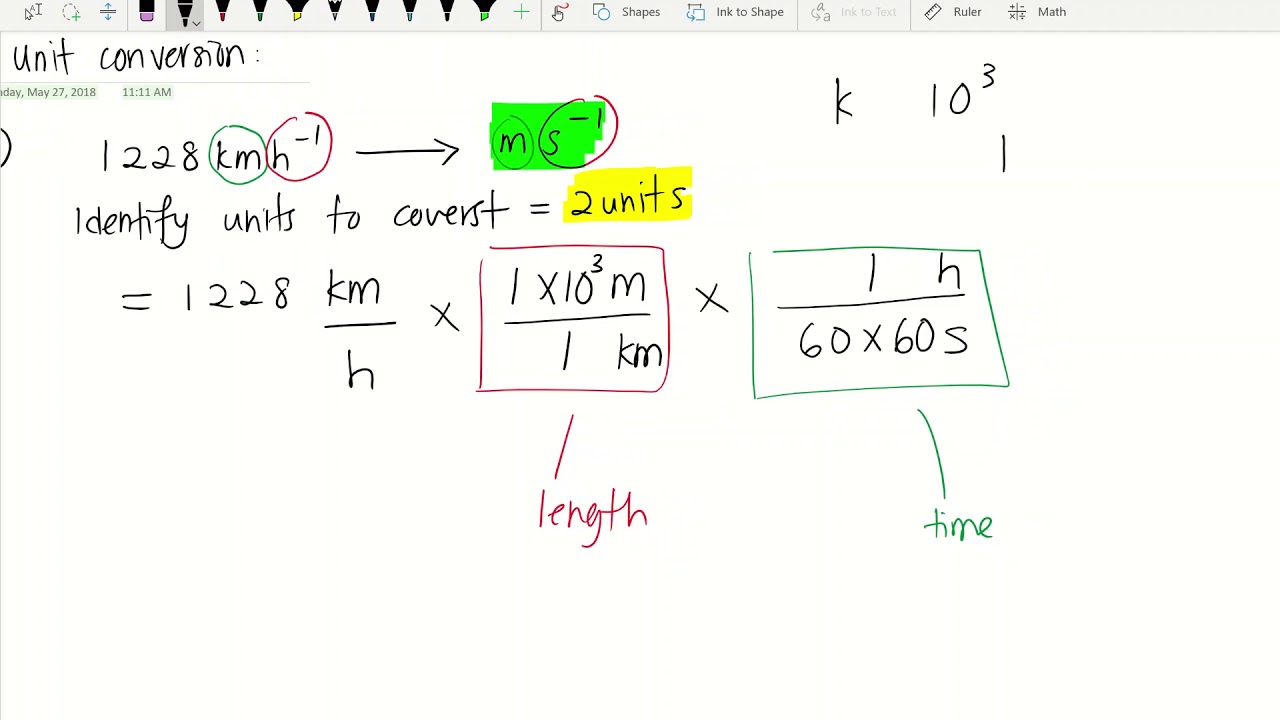 Shapes Ink to Shape Ink to Text Ruler Math
unit conversion:
nday, May 27, 2018 11:11 AM
k 10³
) 1228 kmh⁻¹ ⟶ ms⁻¹
1
Identify units to coverst = 2 units
= 1228 km/h × 1×10³m/1 km × 1 h/60×60s
length
time